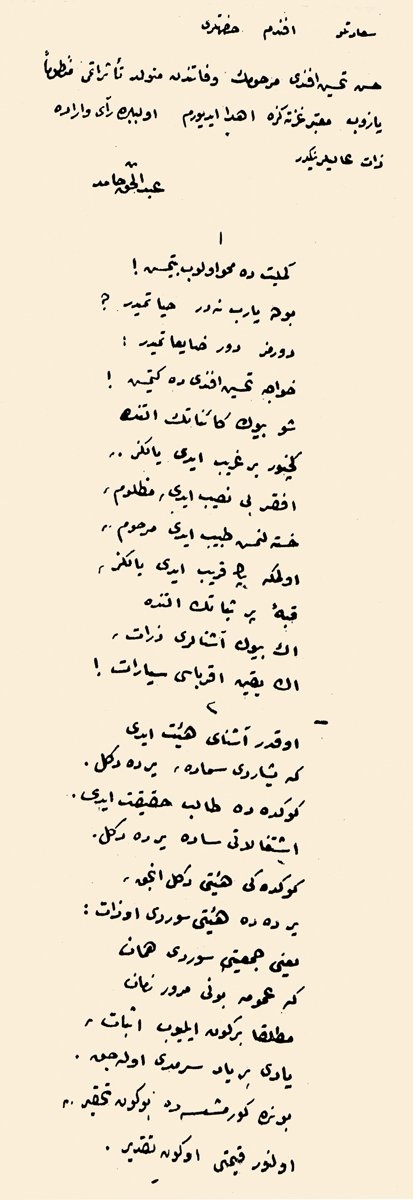 سعادتلو افندم حضرتلری
حسن تحسین افندی مرحومك وفاتندن متولد تأثراتمی منظوماً
یازوب معتبر غزته‌كزه اهدا ایدییورم اولبابده رأی و اراده
ذات عالیلرینكدر
عبدالحق حامد
١
كملیت ده محو اولوب بیتمسین !
بو نه یارب نه در حیاتمیدر ؟
دورمز دور ضایعاتمیدر :
خواجه تحسین افندی ده كیتمسین !
شو بیوك كائناتك التنده
كچنور بر غریب ایدی یالكز ..
افقر بی نصیب ایدی، مظلوم،
خسته لنمش طبیب ایدی مرحوم ..
اولمكه پك قریب ایدی یالكز،
قبهٔ پر ثباتك التنده
اك بیوك آشنالری ذرات،
اك یقین اقرباسی سیارات !
٢
اوقدر آشنای هیئت ایدی
كه یشاردی سماده، یرده دكل .
كوكده ده طالب حقیقت ایدی .
اشتغالاتی ساده یرده دكل .
كوكده كی هیئتی دكل انجق،
یرده ده هیئتی سوردی او ذات :
یعنی جمعیتی سوردی همان
كه عمومه بونی مرور زمان
مطلقا بركون ایلیوب اثبات،
یادی بر یاد سرمدی اوله‌جق .
بونده كورمشسه ده بوكون تحقیر ..
اولنور قیمتی اوكون تقدیر .